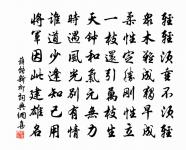 輕輕須重不須輕
眾木難成獨早成
柔性定勝剛性立
一枝還引萬枝生
天鍾和氣元無力
時遇風光別有情
誰道少逢知己用
將軍因此建雄名
薛能新柳詞典網